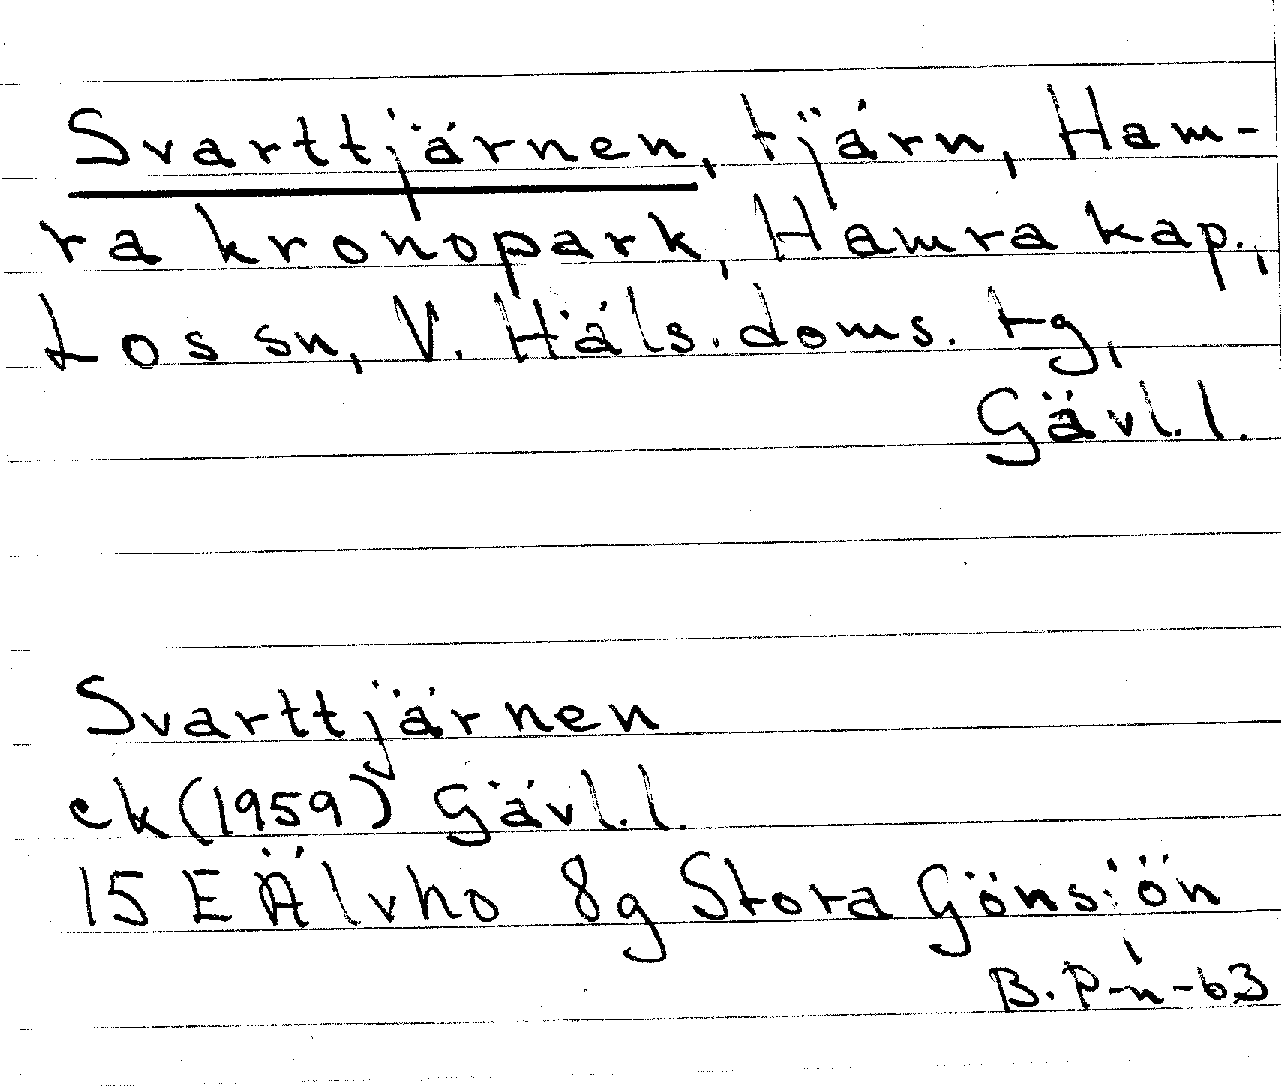 Svarttjärnen, tjärn, Ham-
ra kronopark, Hamra kap.,
Los sn, V. Häls. doms. tg,
Gävl. l.
Svarttjärnen
ek (1959) Gävl. l.
15 E Älvho 8g Stora Gönsjön
B. P-n-63